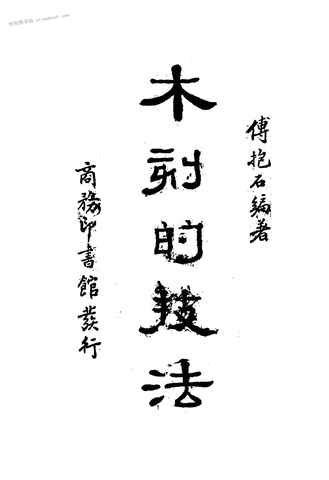 傅抱石編著
木刻的技法
商務印書館發行